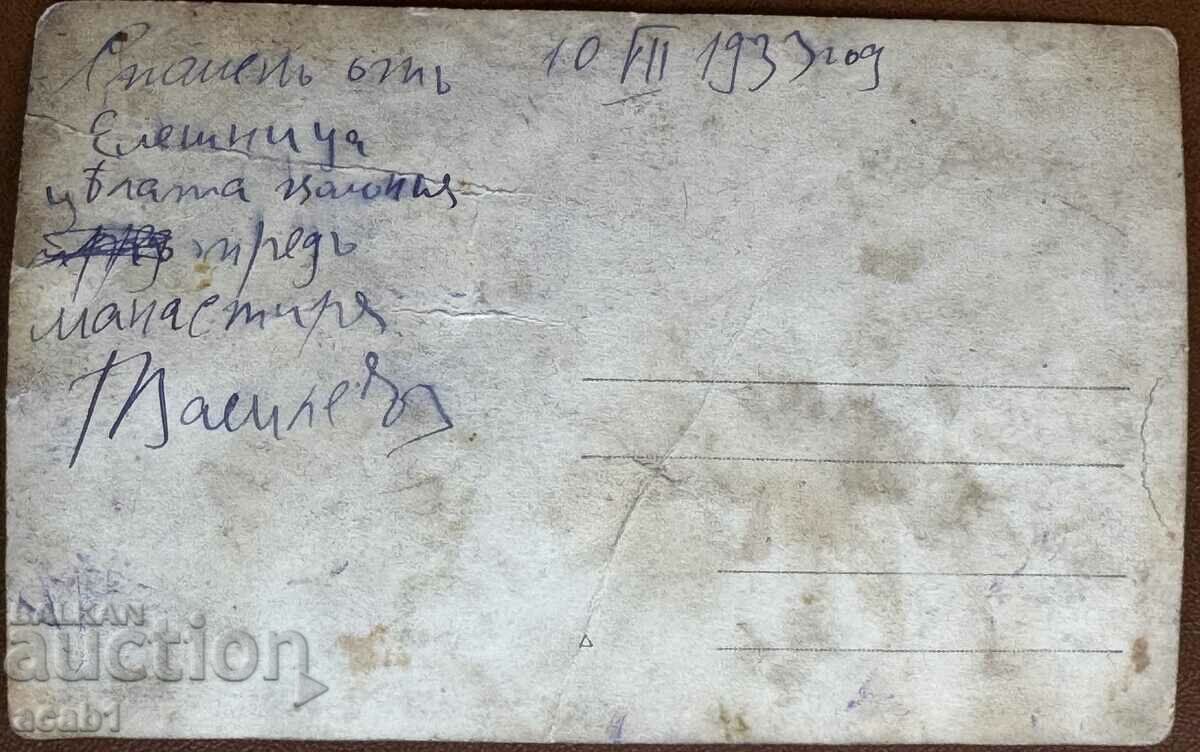 Спомень отъ 10 VII 1933 год
Елешница
цѣлата колония
предъ
манастиря
Василевъ
BALKAN
auction
acab1